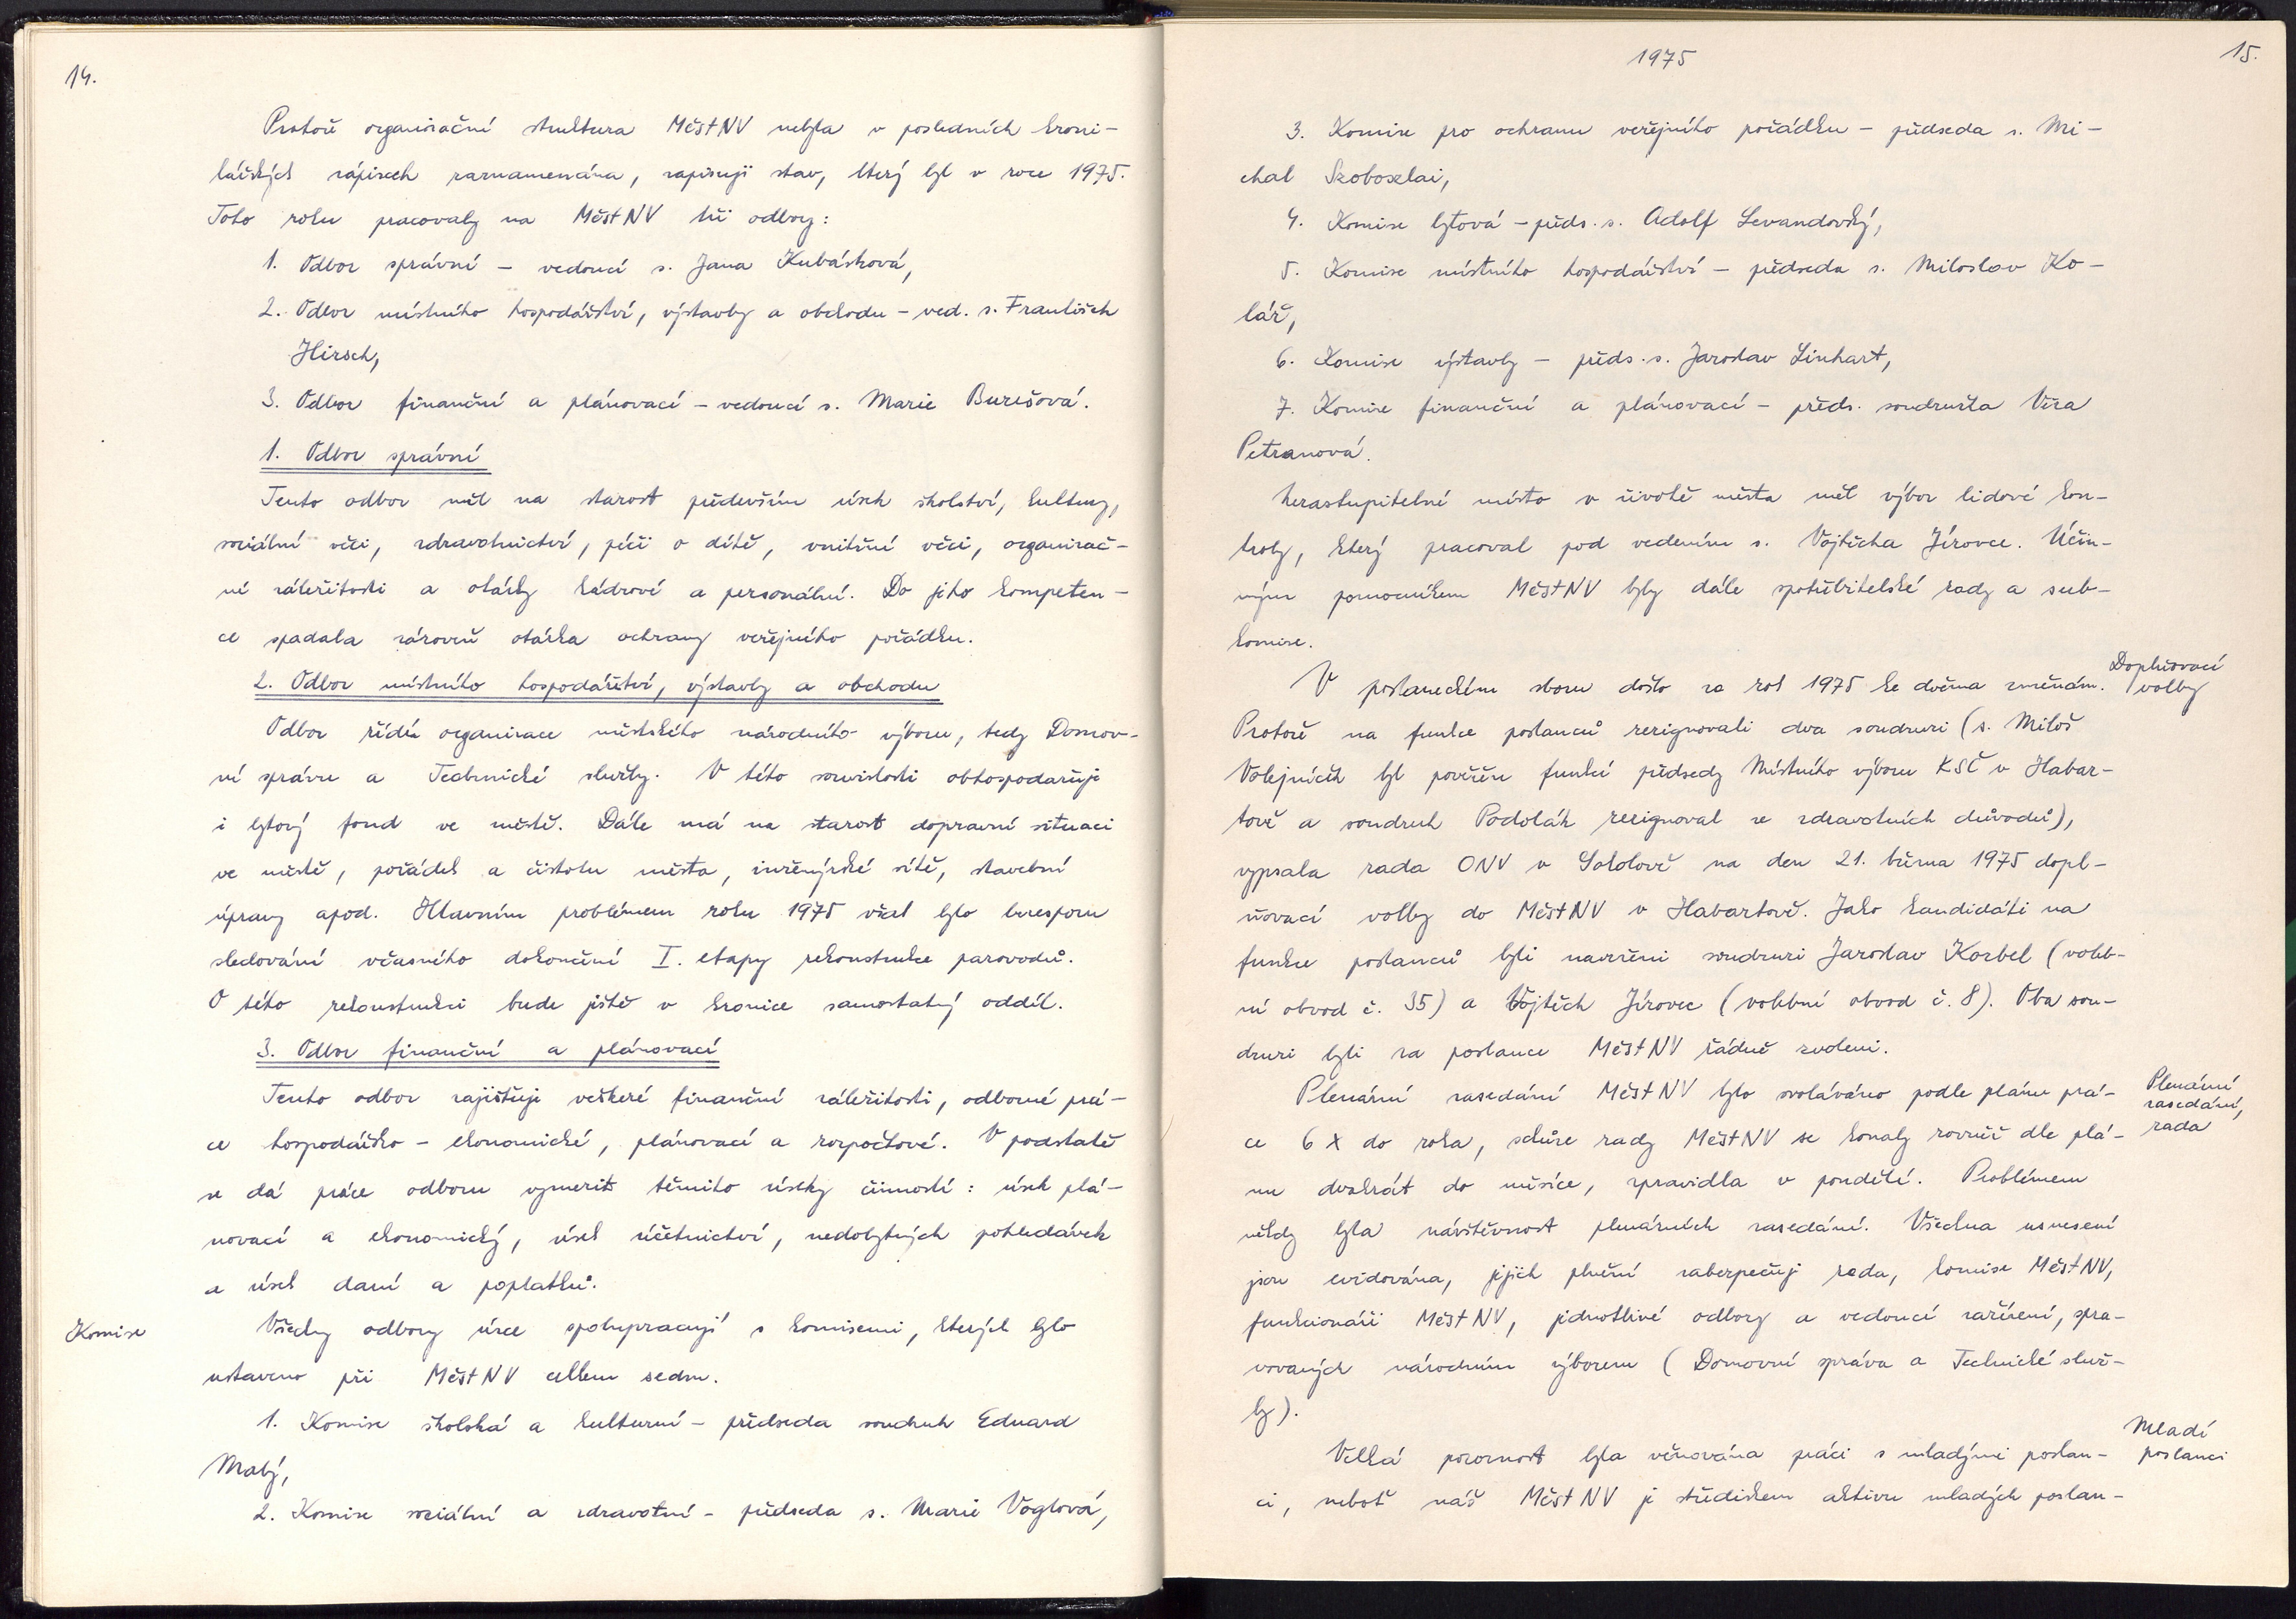 14.
Protože organisační struktura MěstNV nebyla v posledních kroni-
kářských zápisech zaznamenána, zapisuji stav, který byl v roce 1975.
Toho roku pracovaly na MěstNV tři odbory:
1. Odbor správní - vedoucí s. Jana Kubásková,
2. Odbor místního hospodářství, výstavby a obchodu - ved. s. František
Hirsch,
3. Odbor finanční a plánovací - vedoucí s. Marie Burešová.
1. Odbor správní
Tento odbor měl na starost především úsek školství, kultury,
sociální věci, zdravotnictví, péči o dítě, vnitřní věci, organizač-
ní záležitosti a otázky kádrové a personální. Do jeho kompeten-
ce spadala zároveň otázka ochrany veřejného pořádku.
2. Odbor místního hospodářství, výstavby a obchodu
Odbor řídí organizace městského národního výboru, tedy Domov-
ní správu a Technické služby. V této souvislosti obhospodařuje
i bytový fond ve městě. Dále má na starost dopravní situaci
ve městě, pořádek a čistotu města, inženýrské sítě, stavební
úpravy apod. Hlavním problémem roku 1975 však bylo bezesporu
sledování včasného dokončení I. etapy rekonstrukce parovodů.
O této rekonstrukci bude ještě v kronice samostatný oddíl.
3. Odbor finanční a plánovací
Tento odbor zajišťuje veškeré finanční záležitosti, odborné prá-
ce hospodářsko - ekonomické, plánovací a rozpočtové. V podstatě
se dá práce odboru vymezit těmito úseky činností: úsek plá-
novací a ekonomický, úsek účetnictví, nedobytných pohledávek
a úsek daní a poplatků.
Komise
Všechny odbory úzce spolupracují s komisemi, kterých bylo
ustaveno při MěstNV celkem sedm.
1. Komise školská a kulturní - předseda soudruh Eduard
Malý,
2. Komise sociální a zdravotní - předseda s. Marie Voglová,
1975
15.
3. Komise pro ochranu veřejného pořádku - předseda s. Mi-
chal Szoboszlai,
4. Komise bytová - předs. s. Adolf Levandovský,
5. Komise místního hospodářství - předseda s. Miloslav Ko-
lář,
6. Komise výstavby - předs. s. Jaroslav Linhart,
7. Komise finanční a plánovací - předs. soudružka Věra
Petranová.
Nezastupitelné místo v životě města měl výbor lidové kon-
troly, který pracoval pod vedením s. Vojtěcha Jírovce. Účin-
ným pomocníkem MěstNV byly dále spotřebitelské rady a sub-
komise.
Doplňovací
volby
V poslaneckém sboru došlo za rok 1975 ke dvěma změnám.
Protože na funkce poslanců rezignovali dva soudruzi (s. Miloš
Volejníček byl pověřen funkcí předsedy Místního výboru KSČ v Habar-
tově a soudruh Podolák rezignoval ze zdravotních důvodů),
vypsala rada ONV v Sokolově na den 21. března 1975 dopl-
ňovací volby do MěstNV v Habartově. Jako kandidáti na
funkce poslanců byli navrženi soudruzi Jaroslav Korbel (voleb-
ní obvod č. 35) a Vojtěch Jírovec (volební obvod č. 8). Oba sou-
druzi byli za poslance MěstNV řádně zvoleni.
Plenární
zasedání,
rada
Plenární zasedání MěstNV bylo svoláváno podle plánu prá-
ce 6 x do roka, schůze rady MěstNV se konaly rovněž dle plá-
nu dvakrát do měsíce, zpravidla v pondělí. Problémem
někdy byla návštěvnost plenárních zasedání. Všechna usnesení
jsou evidována, jejich plnění zabezpečuje rada, komise MěstNV,
funkcionáři MěstNV, jednotlivé odbory a vedoucí zařízení, spra-
vovaných národním výborem (Domovní správa a Technické služ-
by).
Mladí
poslanci
Velká pozornost byla věnována práci s mladými poslan-
ci, neboť náš MěstNV je střediskem aktivu mladých poslan-